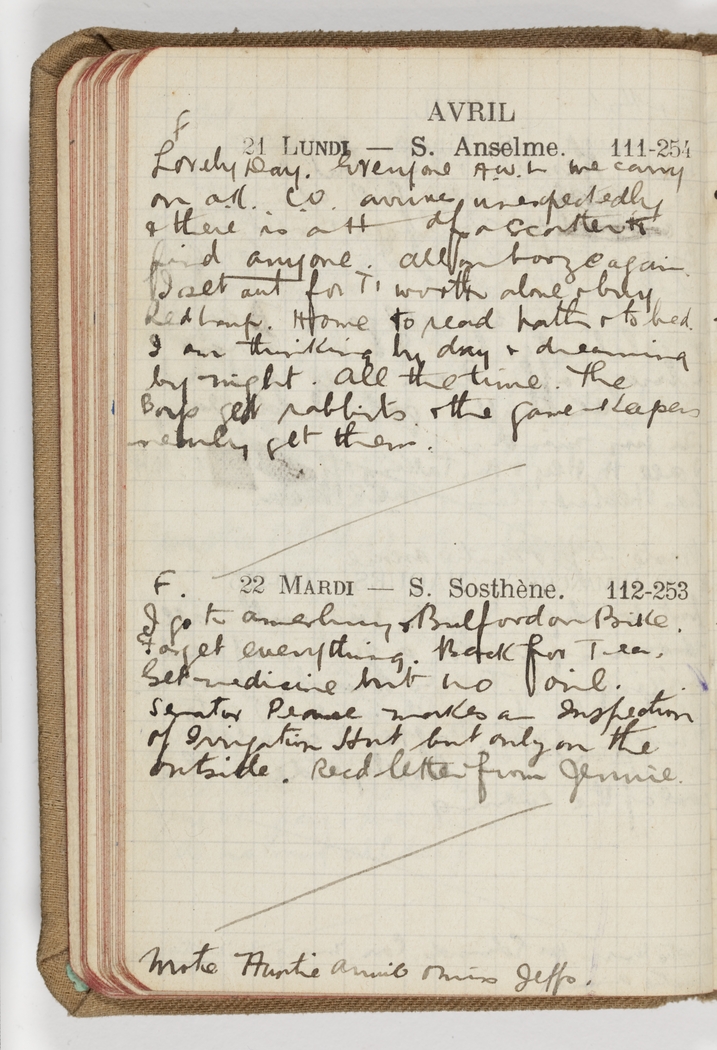 AVRIL
F
21 LUNDI — S. Anselme. 111-254
Lovely Day. Everyone A.W.L. we carry
on all. C.O. arrives unexpectedly
& there is a H of a scatter to
find anyone. All on booze again.
I set out for T' worth alone & buy
Red Lamp. Home to read bath & to bed.
I am thinking by day & dreaming
by night. All the time. The
Boys get rabbits & the game-keepers
nearly get them.
F. 22 MARDI — S. Sosthène. 112-253
I go to Amesbury & Bulford on Bike.
Forget everything. Back for Tea.
Get medicine but no oil.
Senator Pearce makes an Inspection
of Irrigation Hut but only on the
outside. Recd letter from Jennie.
Wrote Auntie Annie & Miss Jeffs.